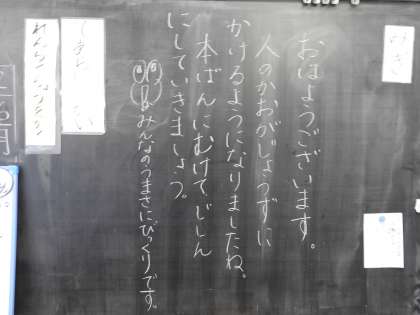 おはようございます。
人のかおがじょうずに
かけるようになりましたね。
本ばんにむけてじしん
にしていきましょう。
みんなのうまさにびっくりです。